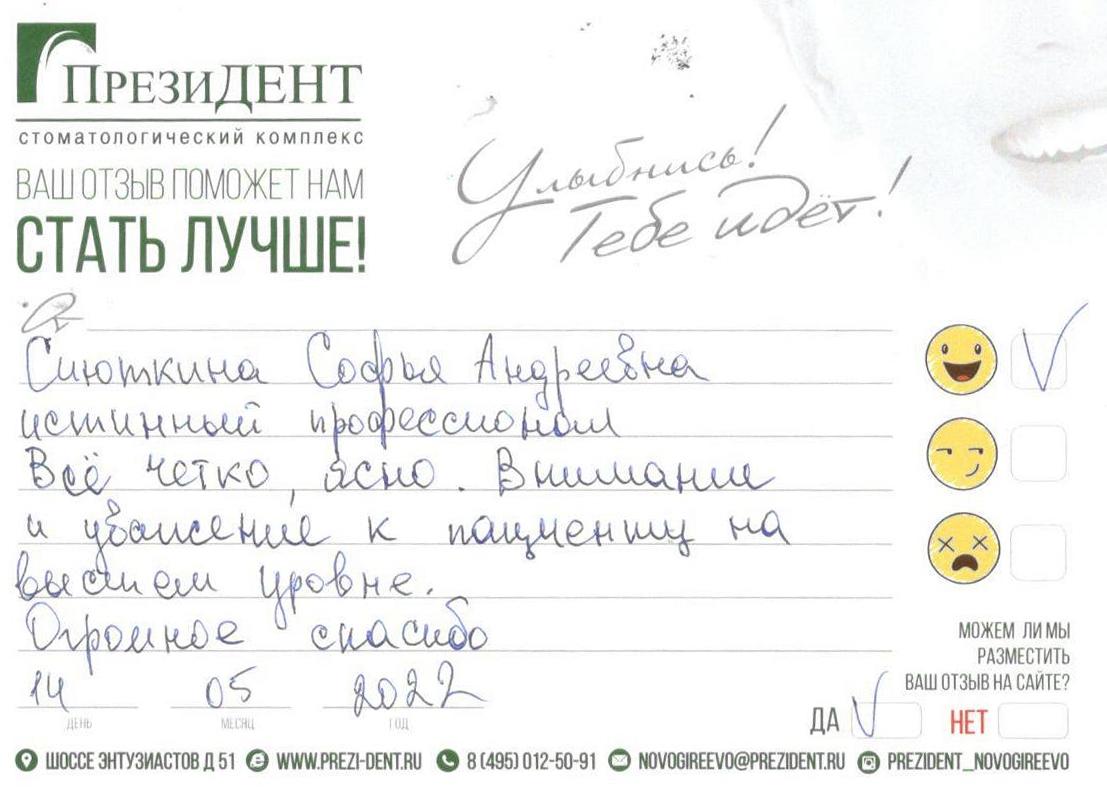 ПРЕЗИДЕНТ
СТОМАТОЛОГИЧЕСКИЙ КОМПЛЕКС
ВАШ ОТЗЫВ ПОМОЖЕТ НАМ
СТАТЬ ЛУЧШЕ!
Улыбнись!
Тебе идёт!
Сиюткина Софья Андреевна
истинный профессионал
Всё четко, ясно. Внимание
и уважение к пациенту на
высшем уровне.
Огромное спасибо
14 05 2022
ДЕНЬ МЕСЯЦ ГОД
МОЖЕМ ЛИ МЫ
РАЗМЕСТИТЬ
ВАШ ОТЗЫВ НА САЙТЕ?
ДА НЕТ
ШОССЕ ЭНТУЗИАСТОВ Д 51 WWW.PREZI-DENT.RU 8 (495) 012-50-91 NOVOGIREEVO@PREZIDENT.RU PREZIDENT_NOVOGIREEVO